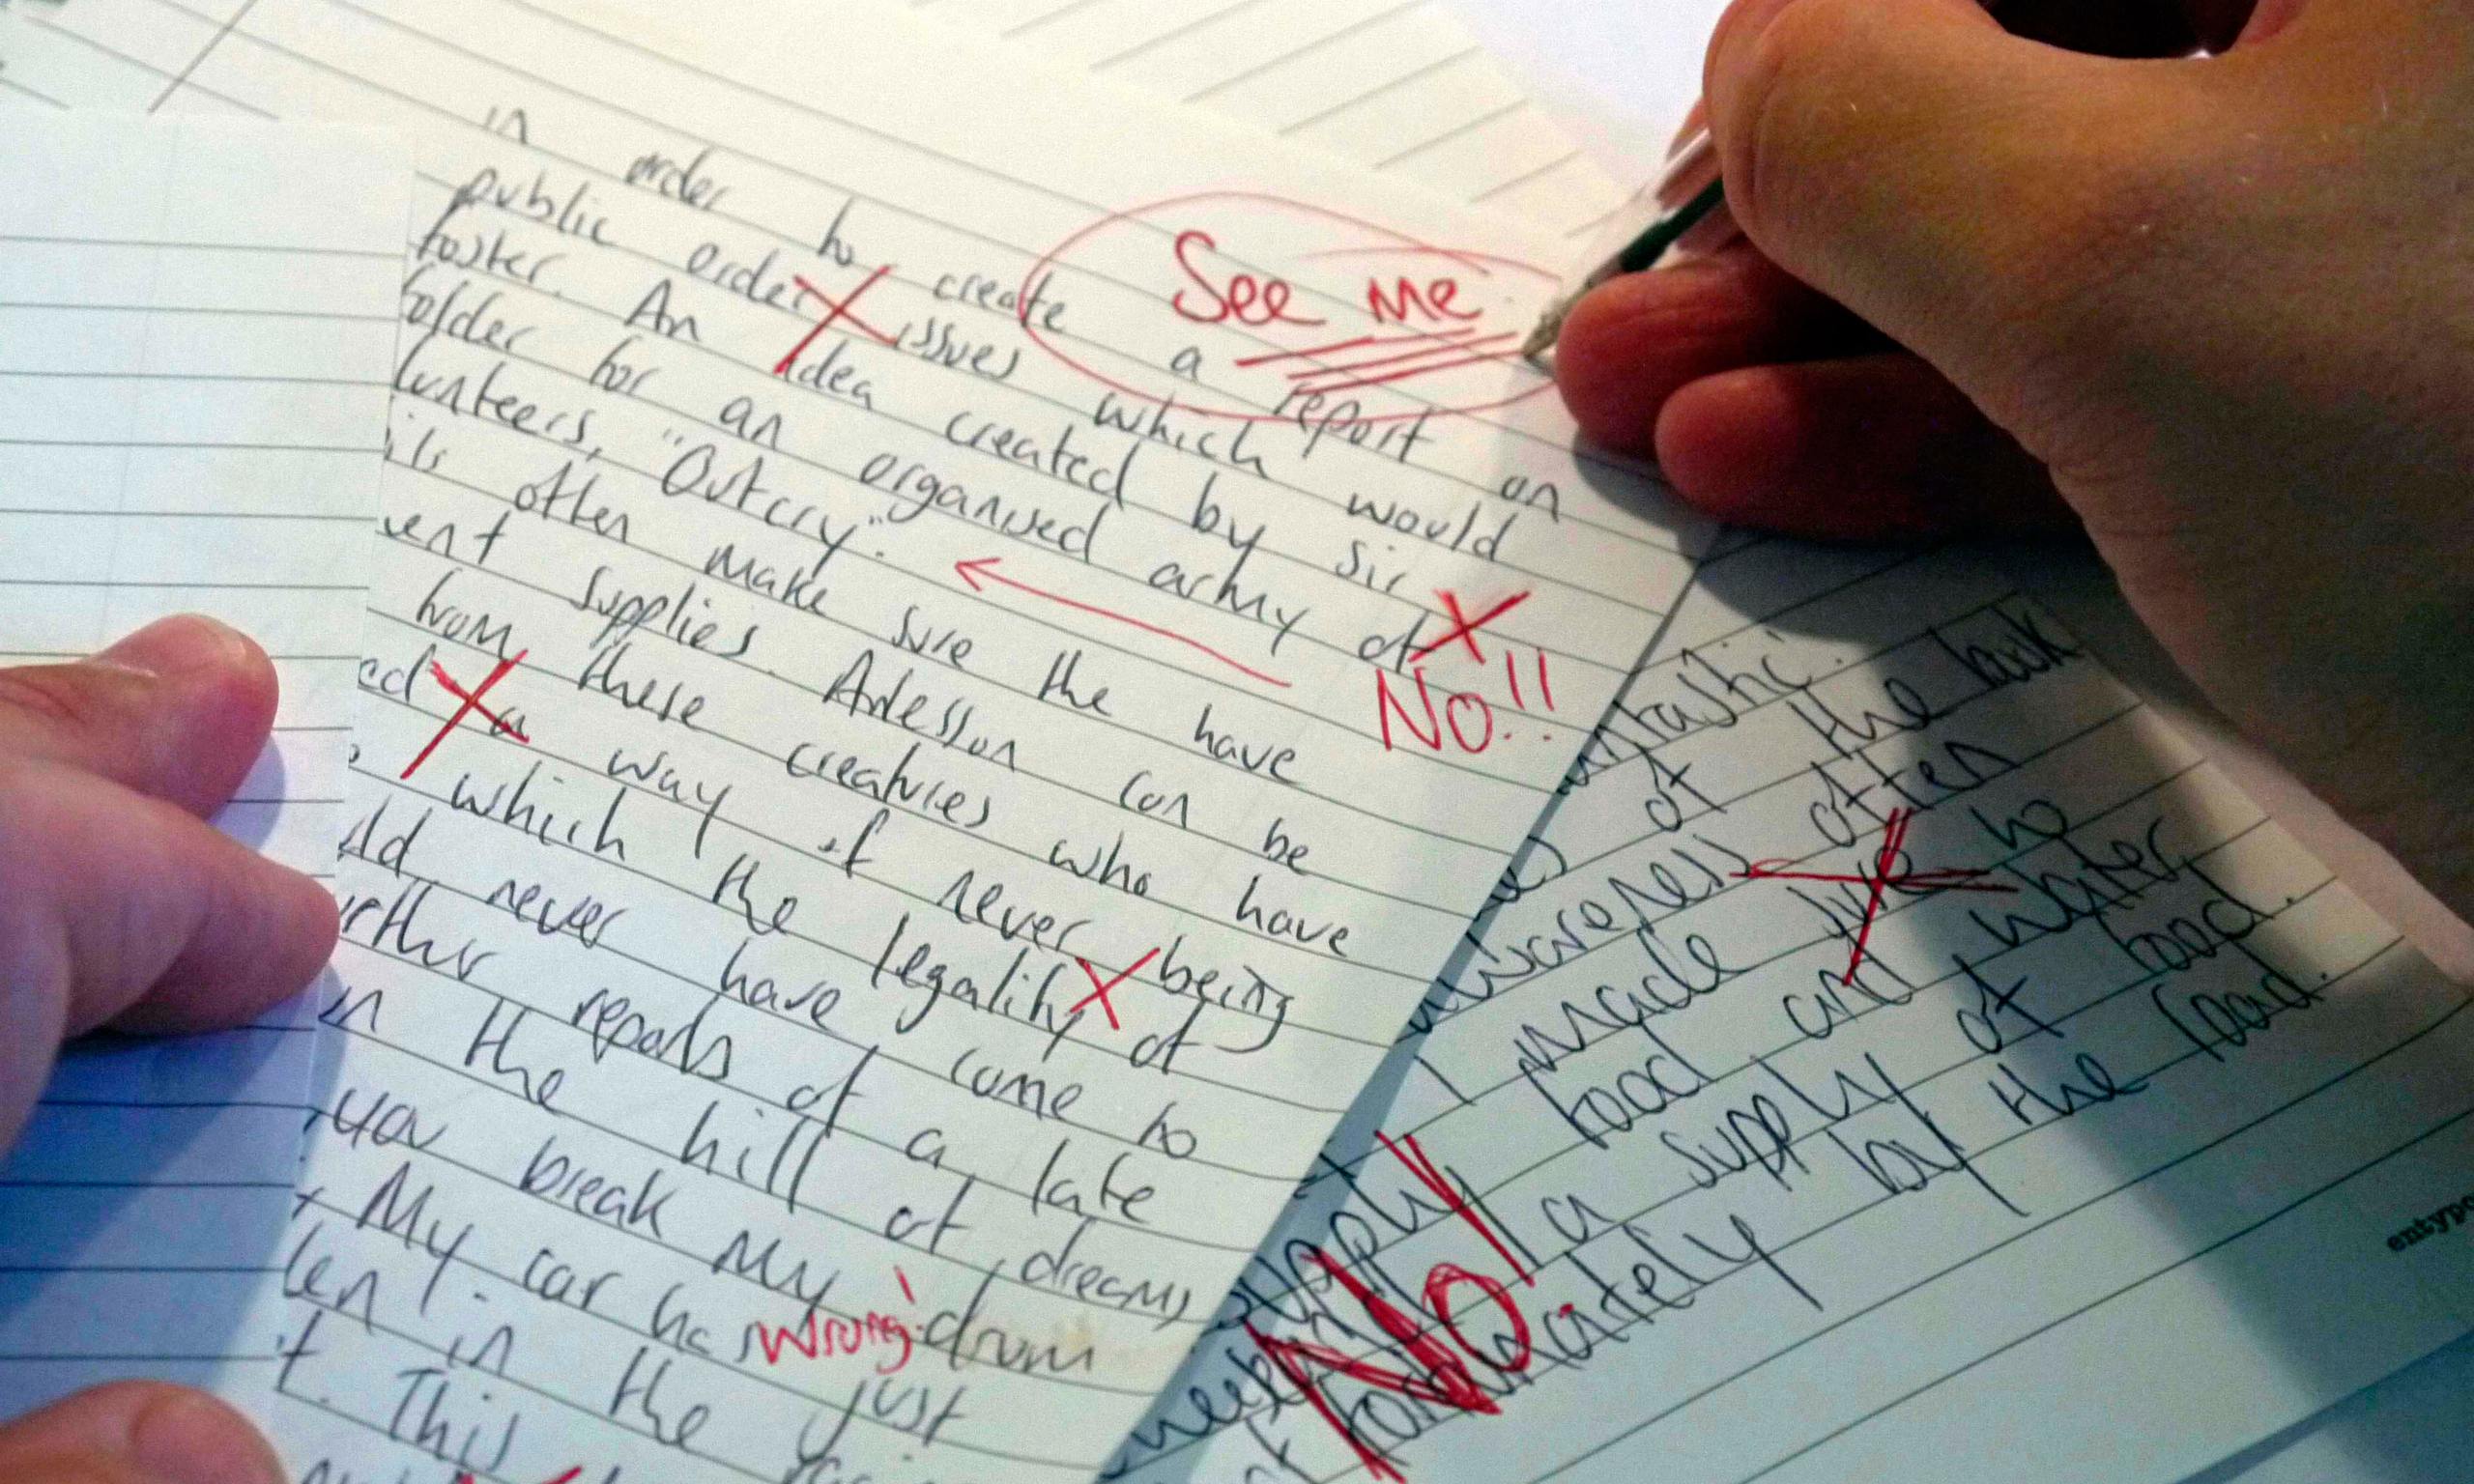 in order to create a report on
See me
public order issues which would
faster. An idea created by Sir
folder for an organised army of
lunteers, "Outcry".
NO!!
ils often make sure the have
vent supplies. can be
from these creatures who have
ed a way of never being
which the legality of
ld never have come to
rther reports of a late
in the hill of dreams
you break my drum
wrong
My car has just
len in the
t. This
ntastic.
of the book
awareness often
I made sure to
food and water
supply a supply of food.
No!
by the road.